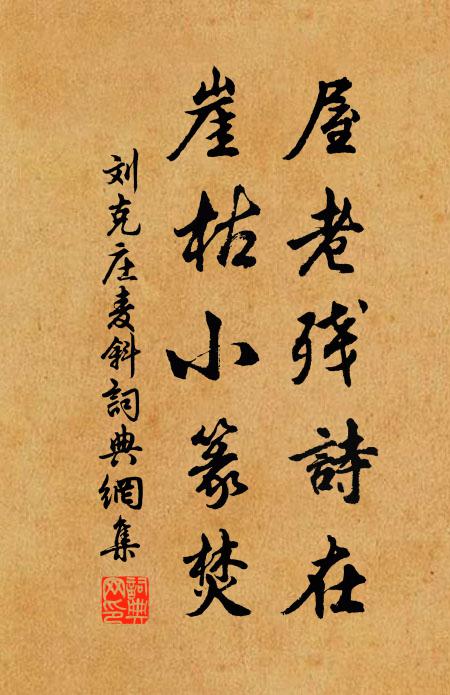 屋老残詩在
崖枯小篆焚
刘克庄麦斜詞典網集
詞典网印